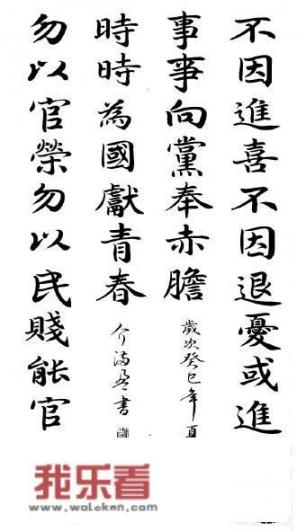 不因進喜不因退憂或進
事事向黨奉赤膽
歲次癸巳年夏
時時為國獻青春
介 書
勿以官榮勿以民賤能官
我乐看
www.woleken.com